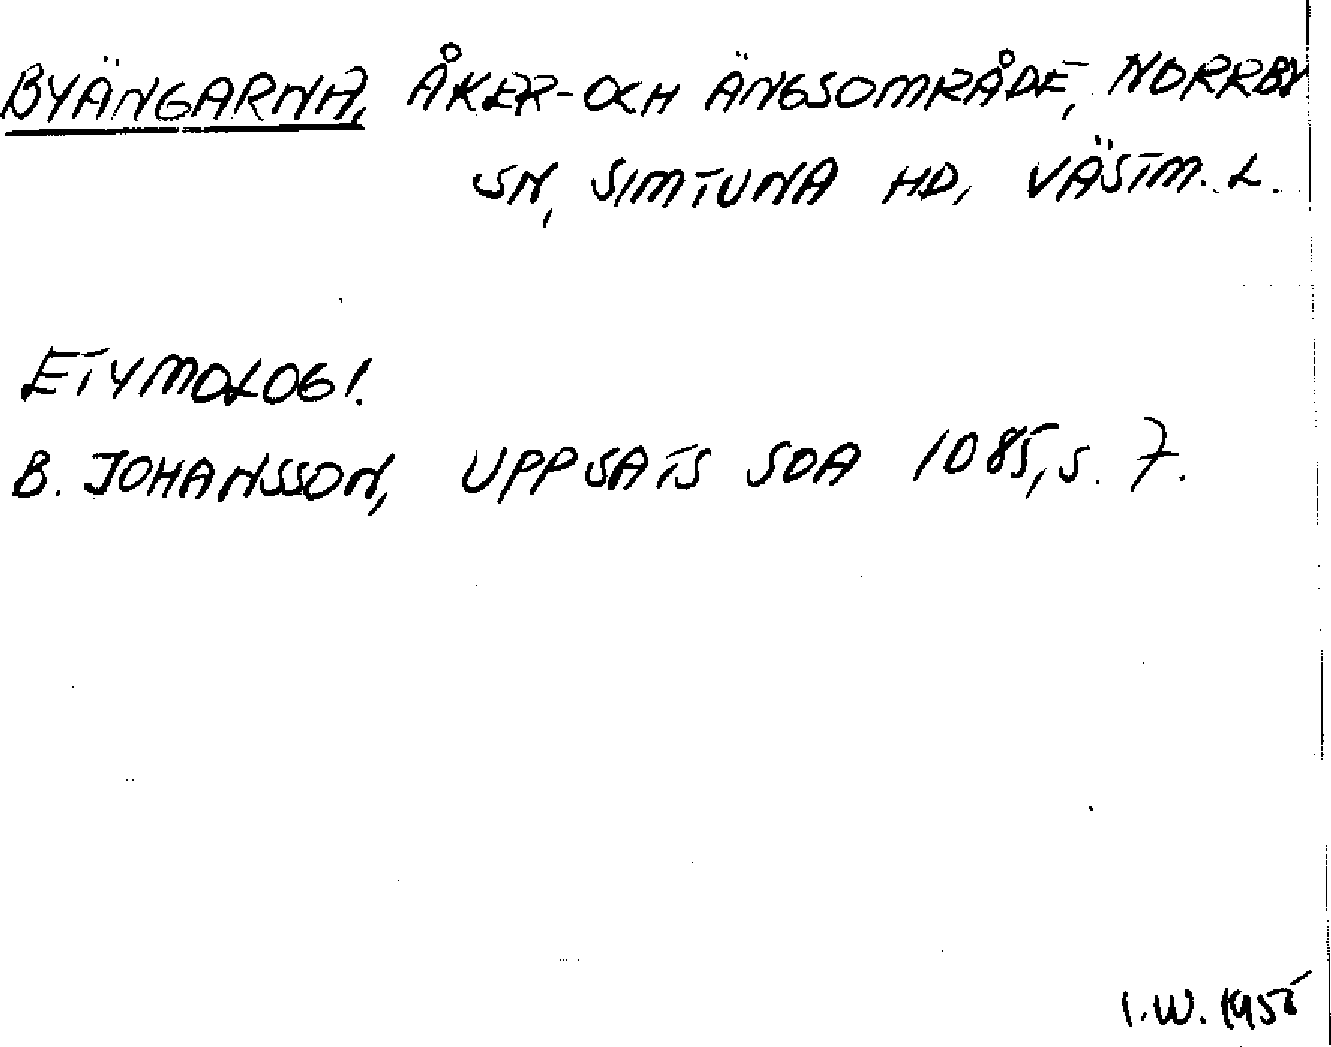 BYÄNGARNA, ÅKER-OCH ÄNGSOMRÅDE, NORRBY
SN, SIMTUNA HD, VÄSTM. L.
ETYMOLOGI.
B. JOHANSSON, UPPSATS SOA 1085, S. 7.
I.W. 1955